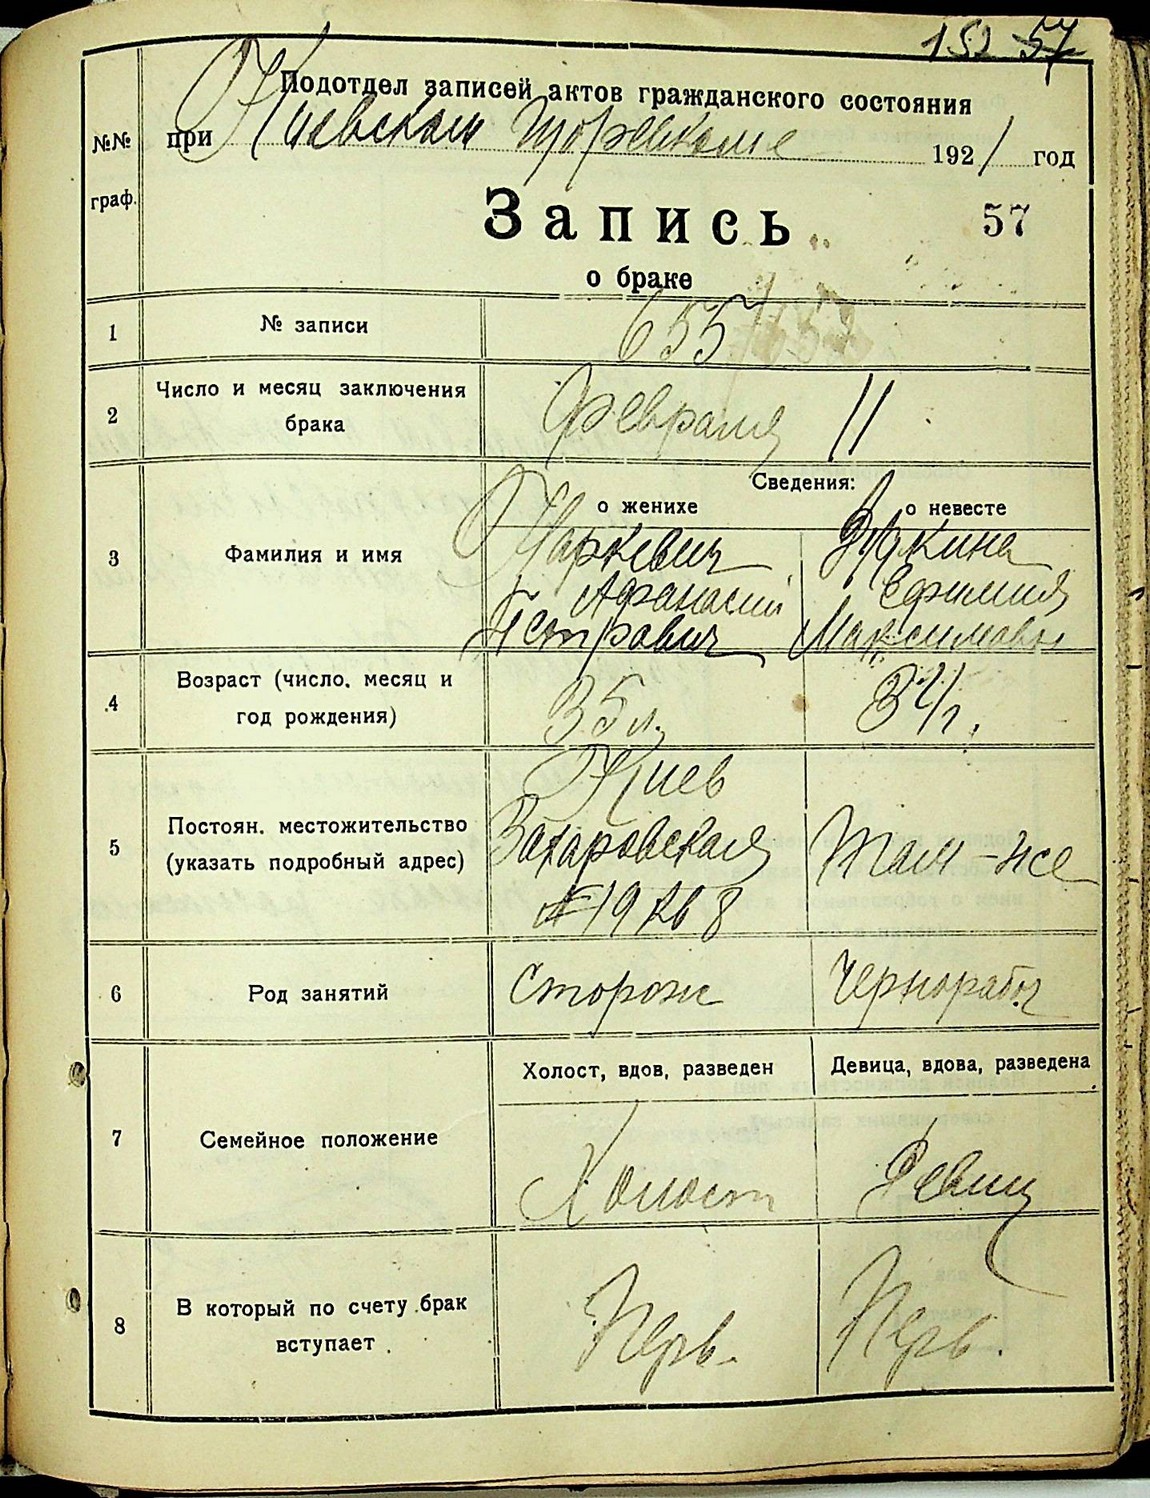 152 57
Подотдел записей актов гражданского состояния
№№
граф.
при Киевском 1921 год
Запись
57
о браке
1 № записи 655
2 Число и месяц заключения
брака
Февраля 11
Сведения:
о женихе о невесте
3 Фамилия и имя
Маркевич
Афанасий
Петрович
Ефимия
Максимовна
4 Возраст (число, месяц и
год рождения)
35 л.
5 Постоян. местожительство
(указать подробный адрес)
Киев
Захаровская
№19 кв 8
Там-же
6 Род занятий Сторож Чернорабоч
Холост, вдов, разведен Девица, вдова, разведена
7 Семейное положение
Холост Девиц
8 В который по счету брак
вступает
Перв. Перв.